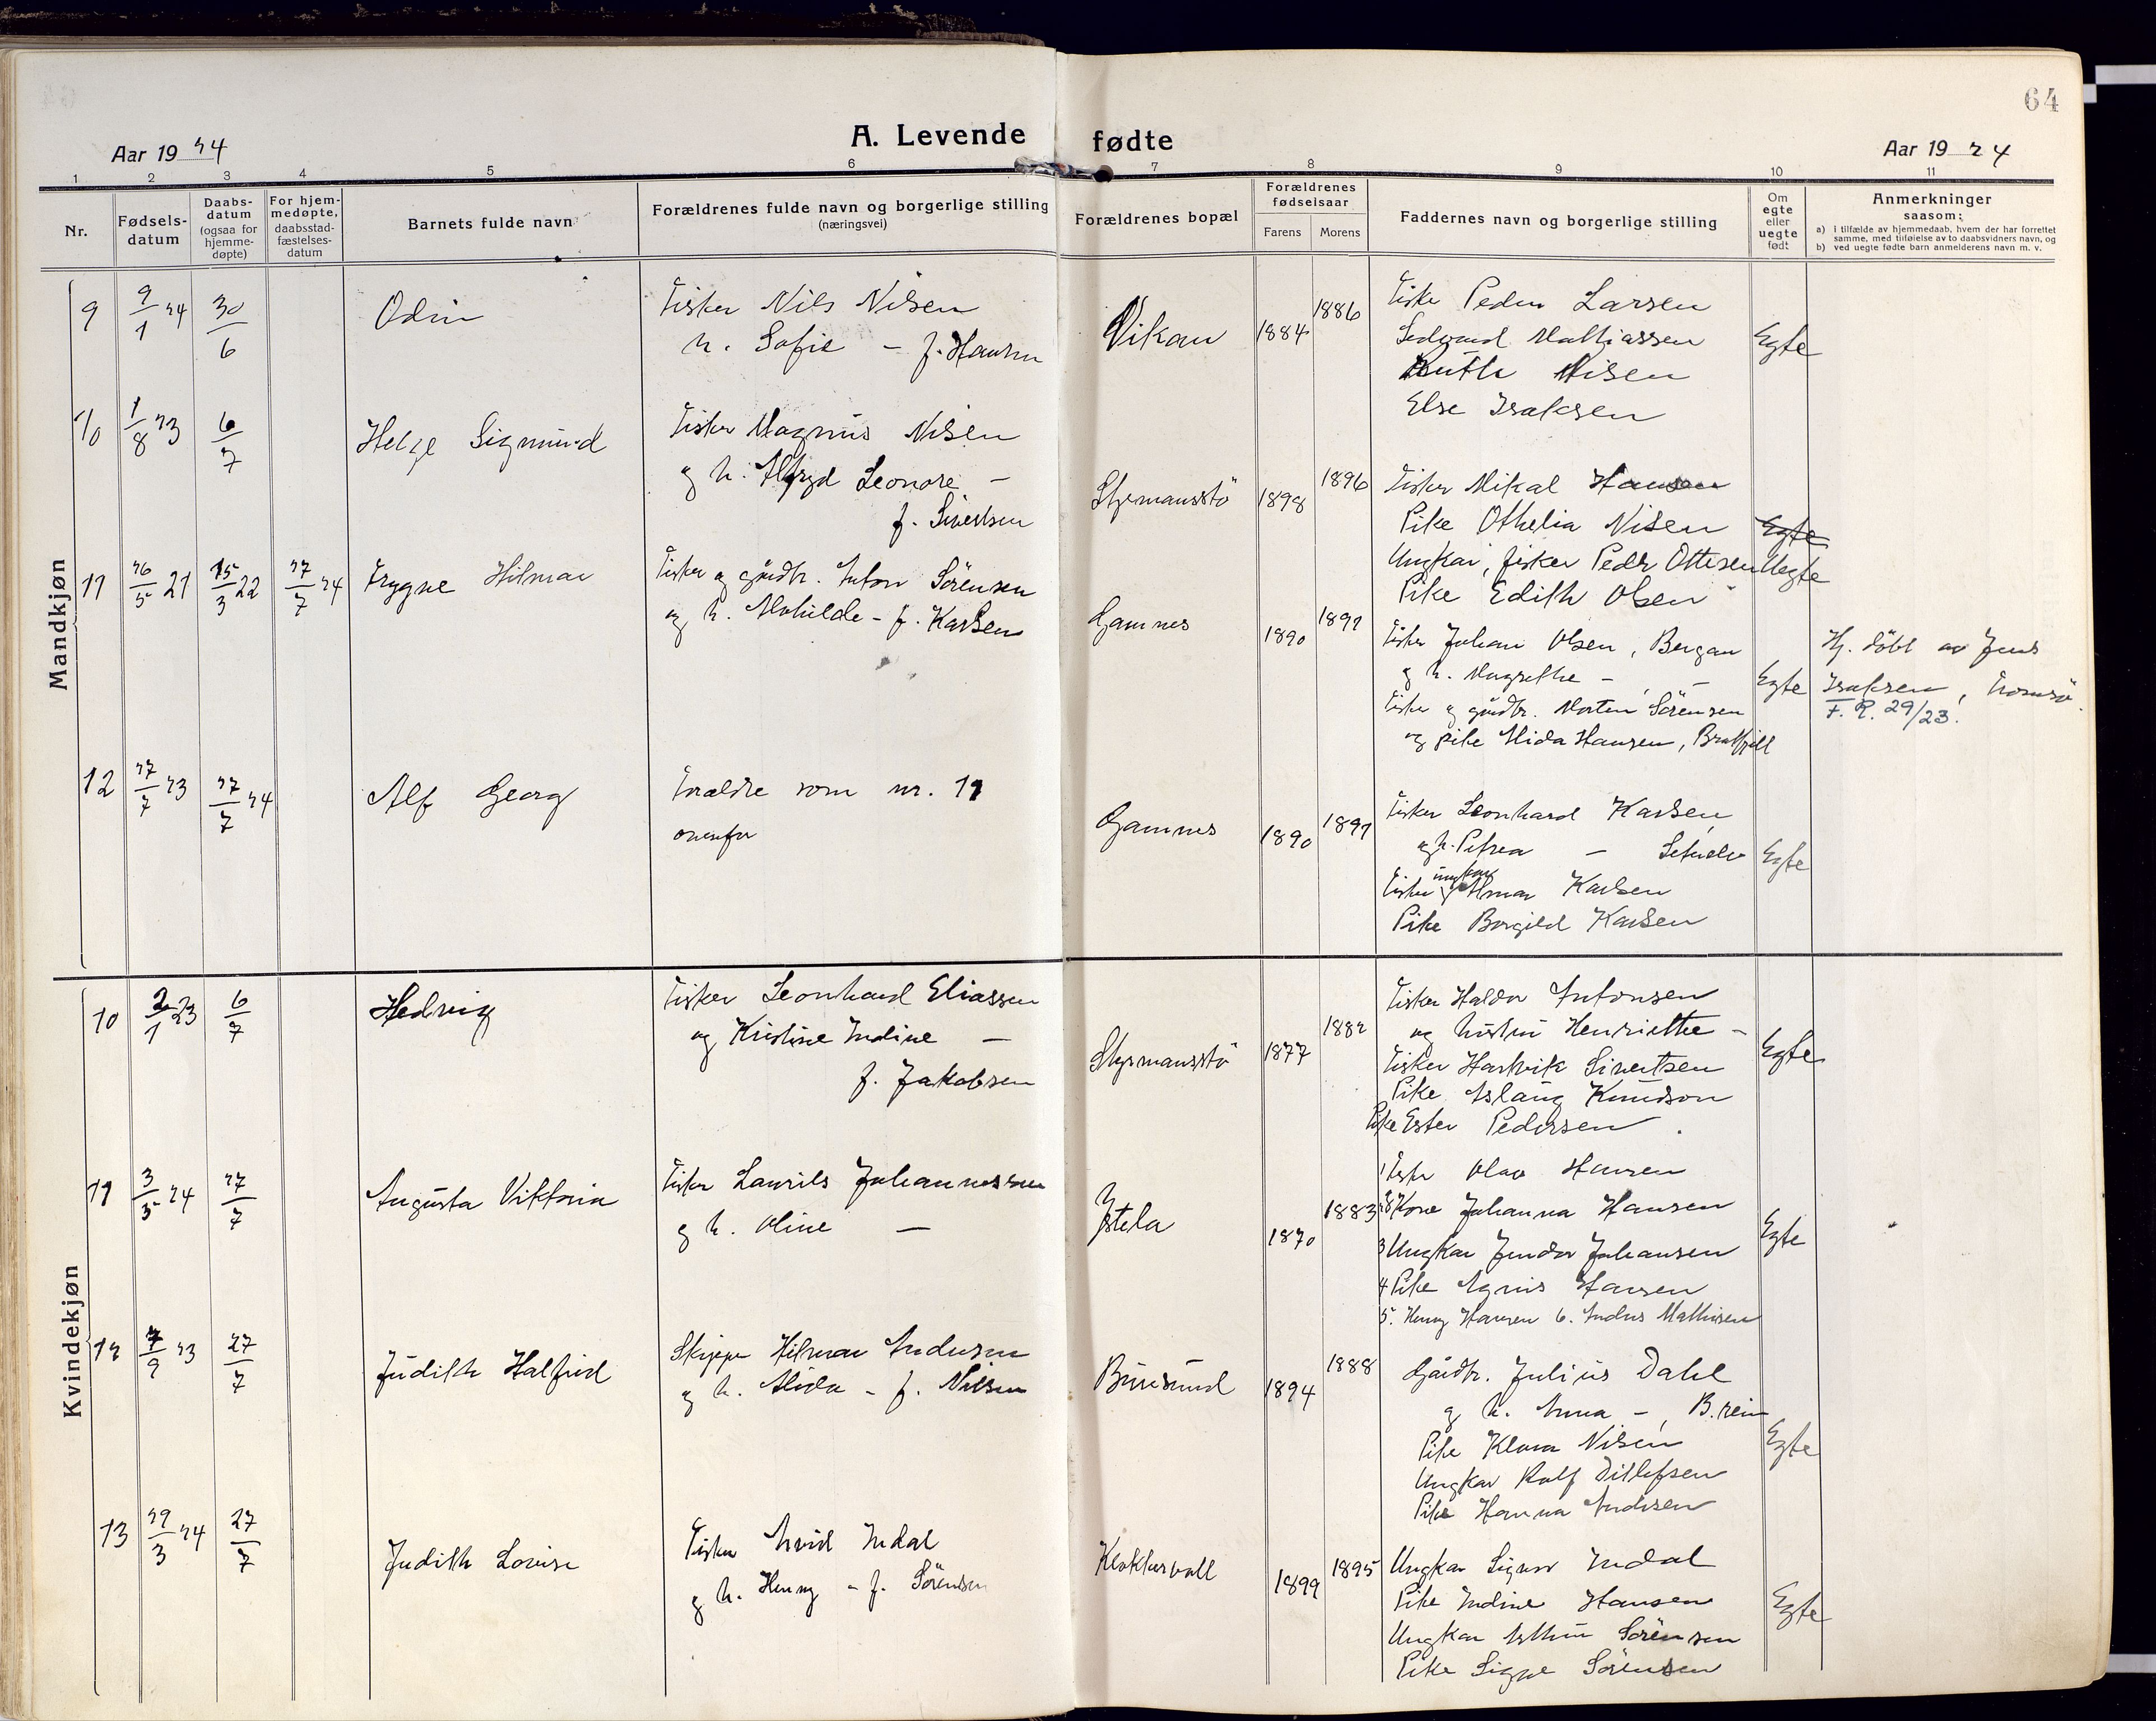 64
A. Levende fødte
Aar 1924
Aar 1924
1 2 3 4 5 6 7 8 9 10 11
Nr.
Fødsels-
datum
Daabs-
datum
(ogsaa for
hjemme-
døpte)
For hjem-
medøpte,
daabsstad-
fæstelses-
datum
Barnets fulde navn
Forældrenes fulde navn og borgerlige stilling
(næringsvei)
Forældrenes bopæl
Forældrenes
fødselsaar
Farens Morens
Faddernes navn og borgerlige stilling
Om
egte
eller
uegte
født
Anmerkninger
saasom:
a) i tilfælde av hjemmedaab, hvem der har forrettet
samme, med tilføielse av to daabsvidners navn, og
b) ved uegte fødte barn anmelderens navn m. v.
Mandkjøn
9 9/1 24 30/6 Odin
Fisker Nils Nilsen
h. Sofie – f. Hansen
Vikan 1884 1886
Fisker Peder Larsen
Sedvard Mathiassen
Ruth Nilsen
Else Isaksen
Egte
10 1/8 23 6/7 Helge Sigmund
Fisker Magnus Nilsen
og h. Alfryd Leonore –
f. Sivertsen
Styrmansstö 1898 1896
Fisker Mikal Hansen
Pike Othelia Nilsen
Ungkar, fisker Peder Ottesen
Pike Edith Olsen
Egte
Uegte
11 26/5 21 15/3 22 27/7 24 Trygve Hilmar
Fisker og gårdbr. Anton Sörensen
og h. Mathilde – f. Karlsen
Gamnes 1890 1891
Fisker Johan Olsen, Bergan
og h. Margrethe –
Fisker og gårdbr. Morten Sörensen
og pike Alida Hansen, Bratfjell
Egte
Hj. döbt av Jens
Isaksen, Tromsö.
F. R. 29/23.
12 27/7 23 27/7 24 Alf Georg
Forældre som nr. 11
ovenfor
Gamnes 1890 1891
Fisker Leonhard Karlsen
og h. Petrea –
Fisker ungkar Almar Karlsen
Pike Borgild Karlsen
Egte
Kvindekjøn
10 2/1 23 6/7 Hedvig
Fisker Leonhard Eliassen
og Kristine Indine –
f. Jakobsen
Styrmansstö 1877 1882
Fisker Haldor Antonsen
og hustru Henriette –
Fisker Hartvik Sivertsen
Pike Aslaug Knudson
Pike Ester Pedersen
Egte
11 3/5 24 27/7 Augusta Viktoria
Fisker Laurits Johannessen
og h. Oline –
Ystela 1870 1883
1 Fisker Olav Hansen
2 Kone Johanna Hansen
3 Ungkar Johansen
4 Pike Agnis Hansen
5. Henry Hansen 6. Anders Mathisen
Egte
12 7/9 23 27/7 Judith Halfrid
Skipper Hilmar Andersen
og h. Alida – f. Nilsen
Buresund 1894 1888
Gårdbr. Julius Dahl
og h. Anna –, B.rein
Pike Klara Nilsen
Ungkar Rolf Ditlefsen
Pike Hanna Andersen
Egte
13 29/3 24 27/7 Judith Lovise
Fisker Arvid Indal
og h. Henny – f. Sörensen
Klokkervoll 1899 1895
Ungkar Sigurd Indal
Pike Indine Hansen
Ungkar Arthur Sörensen
Pike Signe Sörensen
Egte